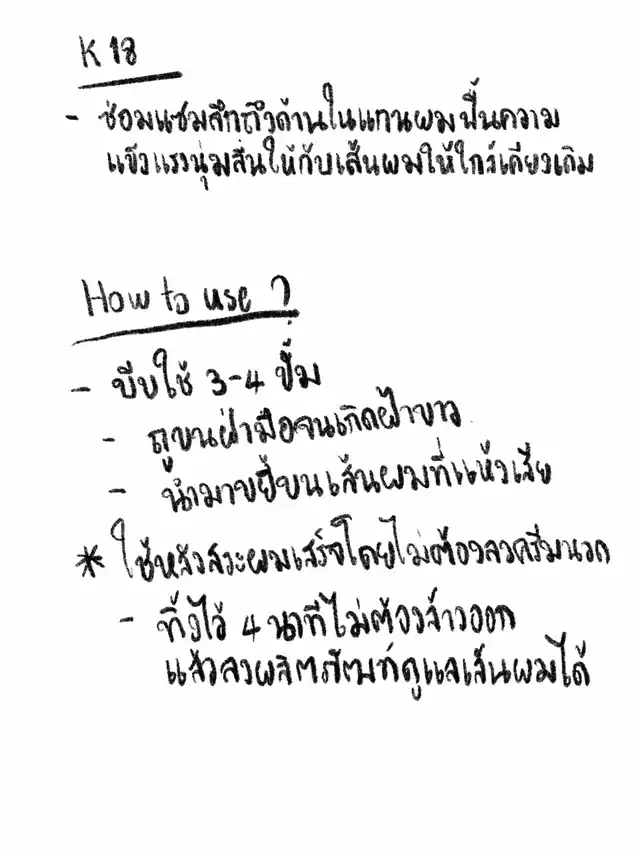 K18
- ซ่อมแซมลึกถึงด้านในแกนผม ฟื้นความ
แข็งแรงนุ่มลื่นให้กับเส้นผมให้ใกล้เคียงเดิม
How to use ?
- บีบใช้ 3-4 ปั้ม
- ถูบนฝ่ามือจนเกิดฝ้าขาว
- นำมาขยี้บนเส้นผมที่แห้งเสีย
* ใช้หลังสระผมเสร็จโดยไม่ต้องลงครีมนวด
- ทิ้งไว้ 4 นาทีไม่ต้องล้างออก
แล้วลงผลิตภัณฑ์ดูแลเส้นผมได้